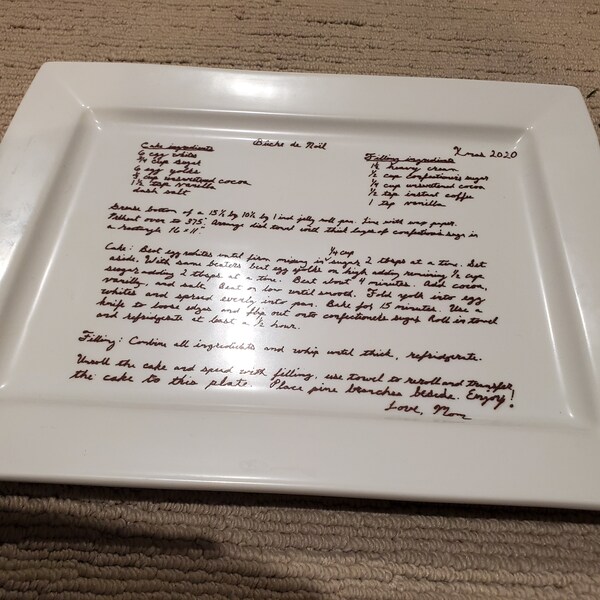 Bûche de Noël
Xmas 2020
Cake ingredients
6 egg whites
3/4 cup sugar
6 egg yolks
cup unsweetened cocoa
1 1/2 tsp vanilla
dash salt
Filling ingredients
1 1/2 heavy cream
1/2 cup confectioners sugar
1/4 cup unsweetened cocoa
1/2 tsp instant coffee
1 tsp vanilla
Grease bottom of a 15 1/2 by 10 1/2 by 1 ind jelly roll pan. Line with wax paper.
Preheat over to 375°. Arrange dish towel with thick layer of confectioners sugar in
a rectangle 16 x 11".
1/4 cup
Cake: Beat egg whites until firm mixing in sugar 2 tbsps at a time. Set
aside. With same beaters beat egg yolks on high adding remaining 1/2 cup
sugar adding 2 tbsps at a time. Beat about 4 minutes. Add cocoa,
vanilla, and salt. Beat on low until smooth. Fold yolk into egg
whites and spread evenly into pan. Bake for 15 minutes. Use a
knife to loose edges and flip out onto confectioners sugar. Roll in towel
and refridgerate at least a 1/2 hour.
Filling: Combine all ingredients and whip until thick, refridgerate.
Unroll the cake and spread with filling, use towel to reroll and transfer
the cake to this plate. Place pine branches beside. Enjoy!
Love, Mom